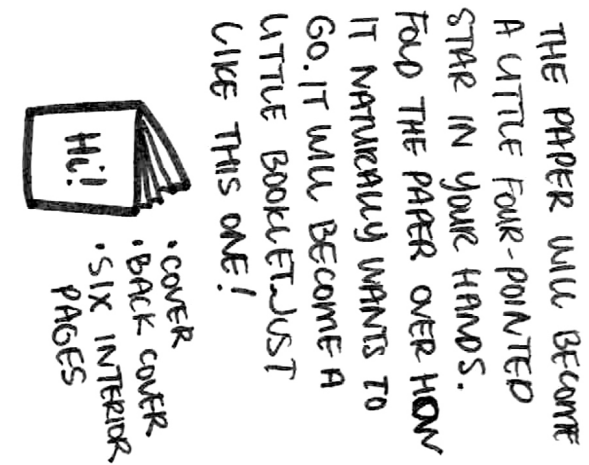 THE PAPER WILL BECOME
A LITTLE FOUR-POINTED
STAR IN YOUR HANDS.
FOLD THE PAPER OVER HOW
IT NATURALLY WANTS TO
GO. IT WILL BECOME A
LITTLE BOOKLET JUST
LIKE THIS ONE!
Hi!
• COVER
• BACK COVER
• SIX INTERIOR
PAGES